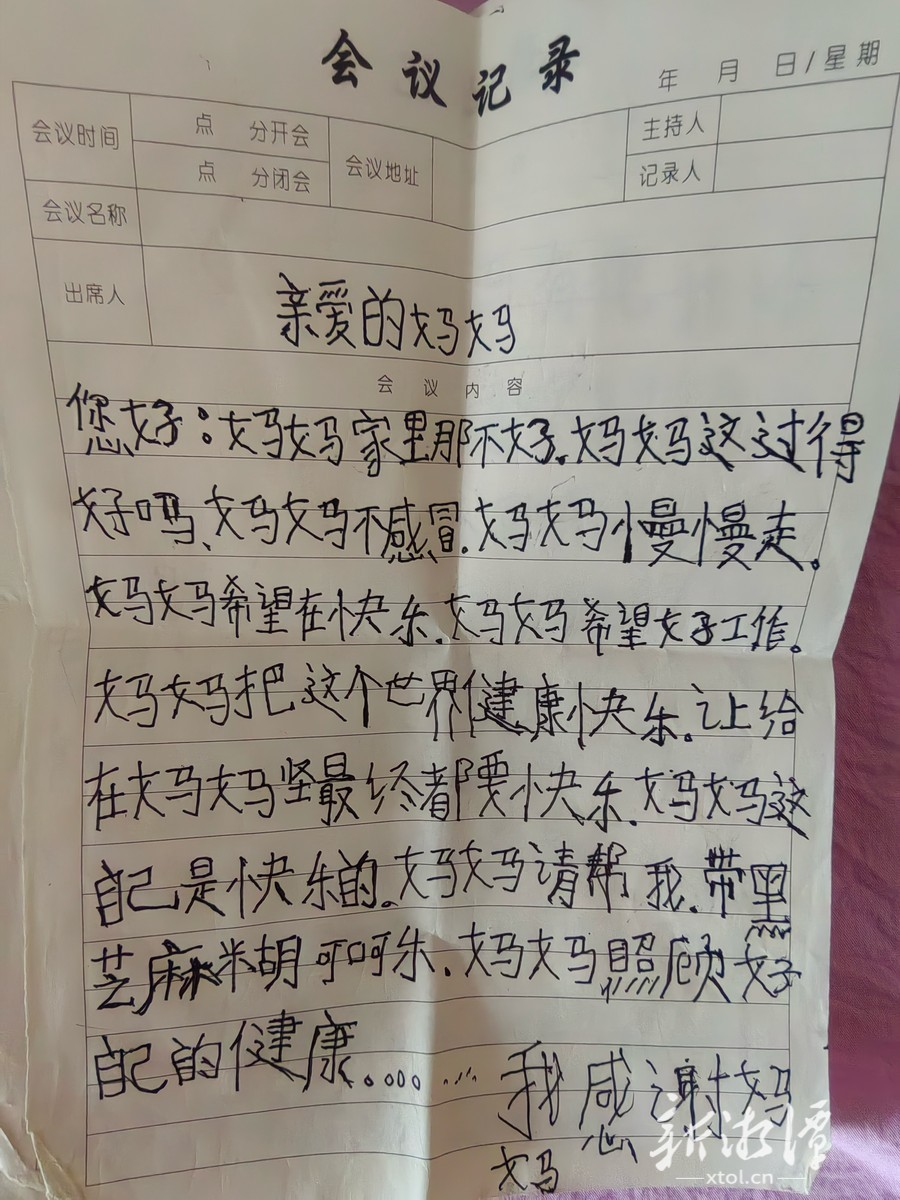 会议记录
年 月 日/星期
会议时间 点 分开会 会议地址 主持人
点 分闭会 记录人
会议名称
出席人
亲爱的妈妈
会议内容
您好:妈妈家里那不好.妈妈这过得
好吗、妈妈不感冒.妈妈慢慢走。
妈妈希望在快乐.妈妈希望好工作。
妈妈把这个世界健康快乐.让给
在妈妈坚最终都要快乐.妈妈这
自己是快乐的.妈妈请帮我.带黑
芝麻米胡可呵乐.妈妈照顾好
自己的健康.。。。……
我感谢妈
妈
新湘潭
xtol.cn